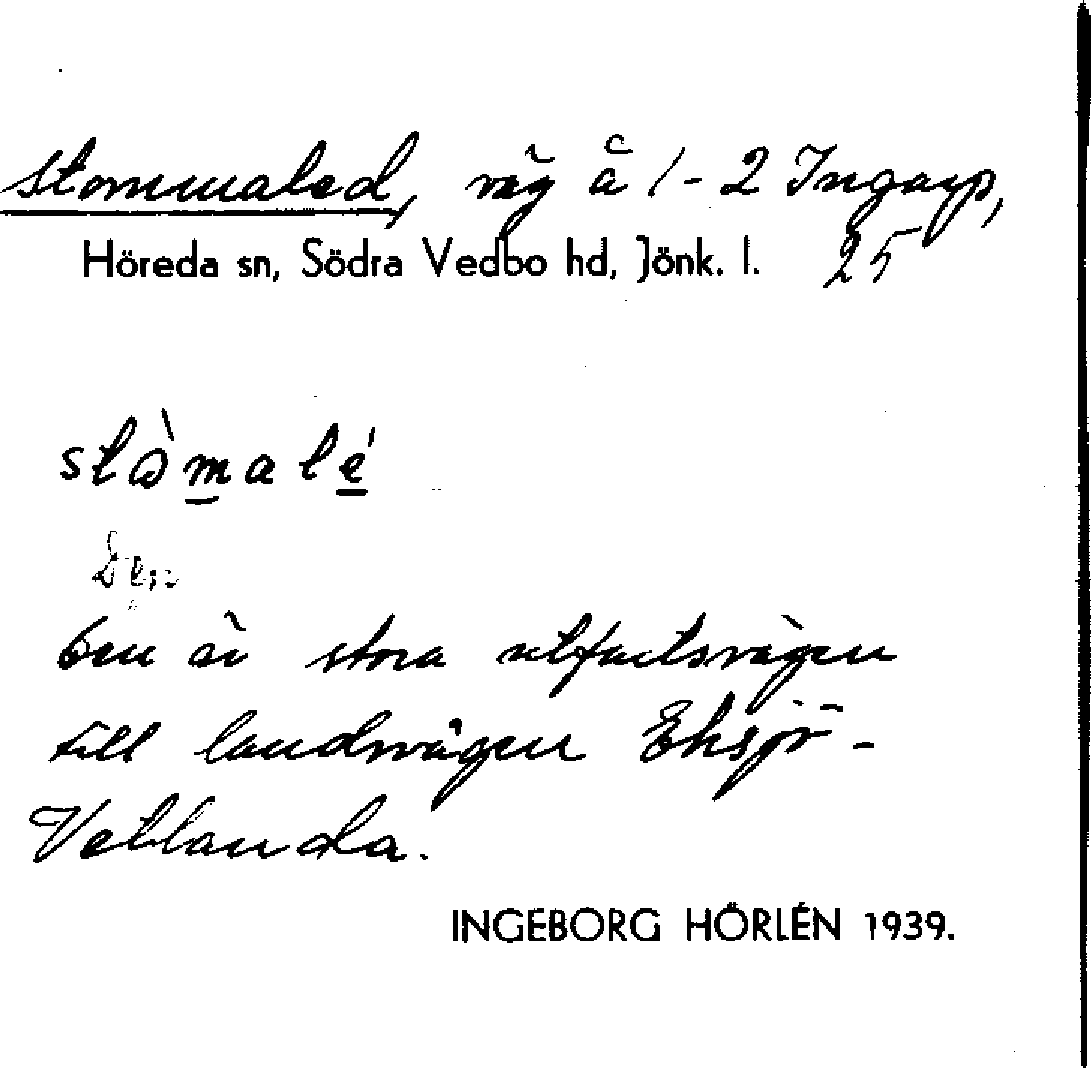 Stommaled, väg å 1-2 Ingarp,
Höreda sn, Södra Vedbo hd, Jönk. l. 25
stòmalé
Den
Den är stora utfartsvägen
till landsvägen Eksjö-
Vetlanda.
INGEBORG HÖRLÉN 1939.